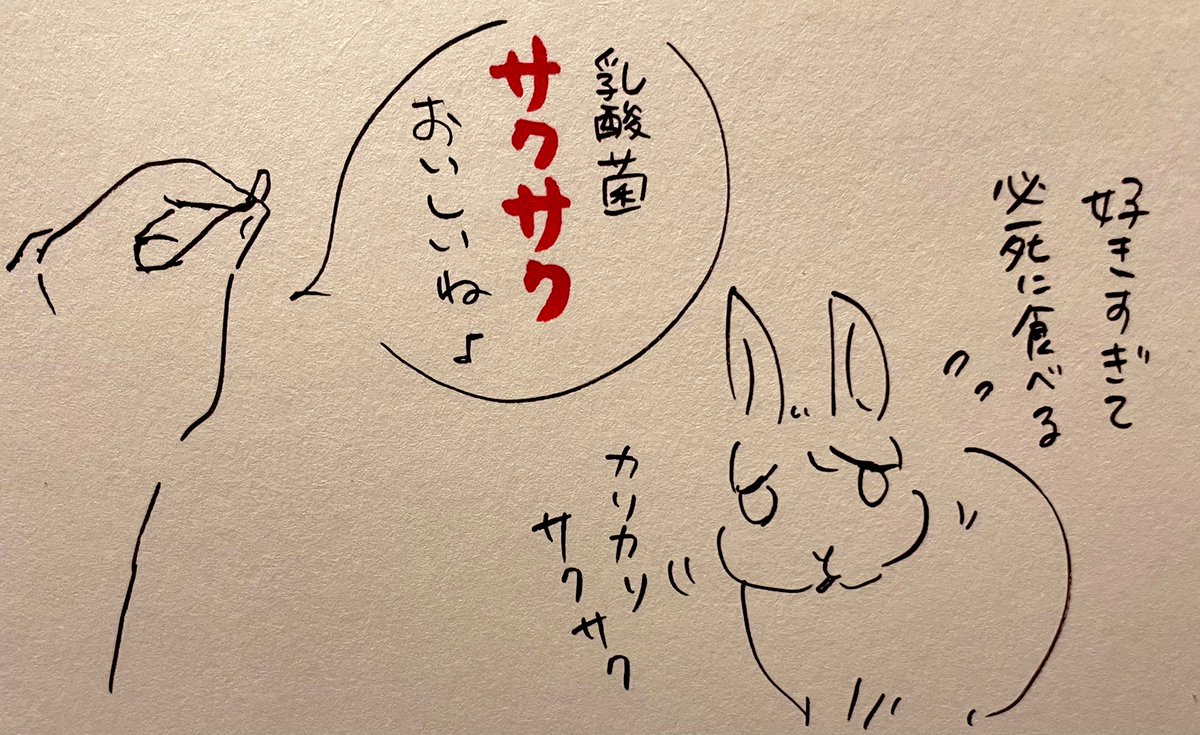 乳酸菌
サクサク
おいしいね♪
好きすぎて
必死に食べる
カリカリ
サクサク